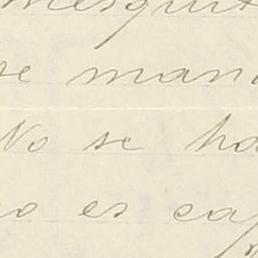 mesquit
se mani
No se ha
no es cap